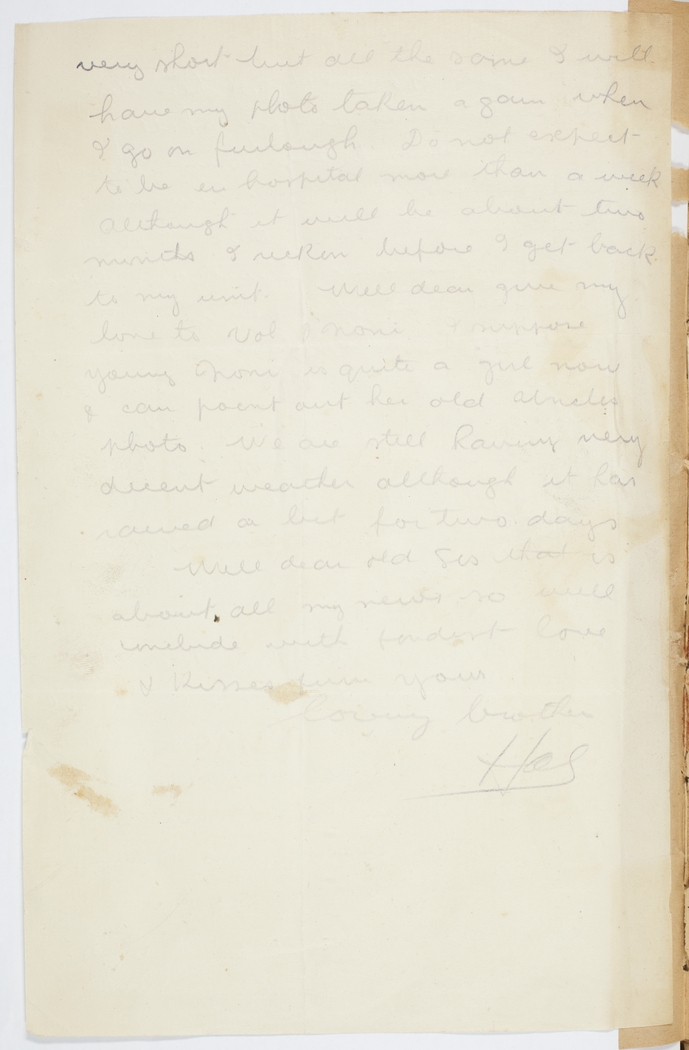 very short but all the same I will
have my photo taken again when
I go on furlough. Do not expect
to be in hospital more than a week
although it will be about two
months I reckon before I get back
to my unit. Well dear give my
love to Vol & Noni I suppose
young Noni is quite a girl now
& can point out her old uncles
photo. We are still having very
decent weather although it has
rained a bit for two days
Well dear old Sis that is
about all my news so will
conclude with fondest love
& Kisses from your
loving brother